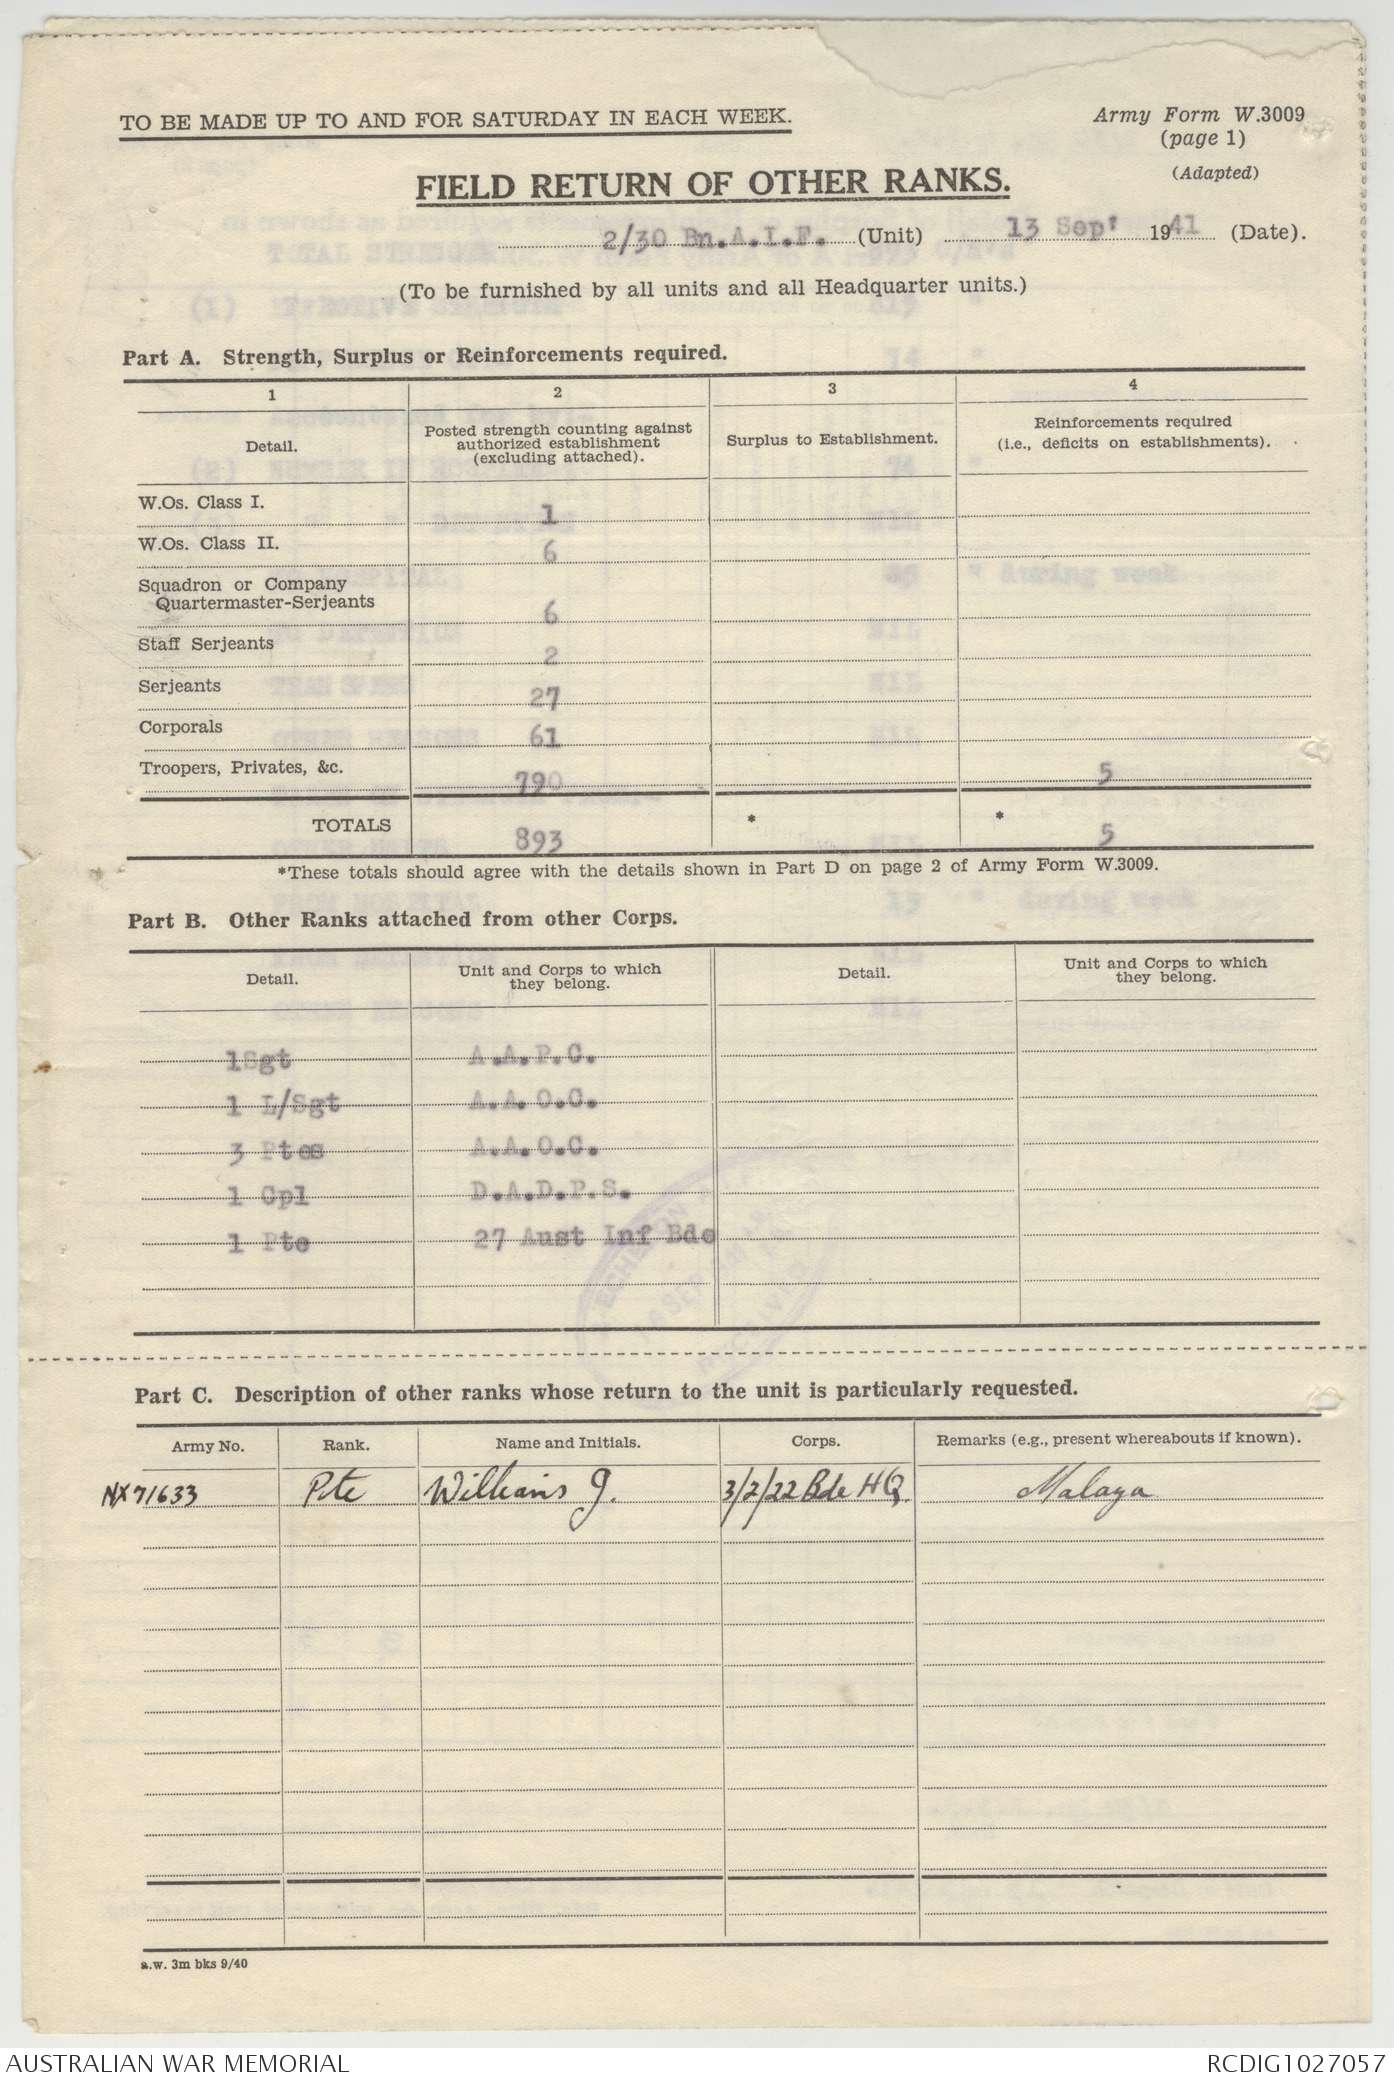 TO BE MADE UP TO AND FOR SATURDAY IN EACH WEEK.
Army Form W.3009
(page 1)
(Adapted)
FIELD RETURN OF OTHER RANKS.
2/30 Bn.A.I.F. (Unit) 13 Sep' 1941 (Date).
(To be furnished by all units and all Headquarter units.)
Part A. Strength, Surplus or Reinforcements required.
1 2 3 4
Detail.
Posted strength counting against
authorized establishment
(excluding attached).
Surplus to Establishment.
Reinforcements required
(i.e., deficits on establishments).
W.Os. Class I. 1
W.Os. Class II. 6
Squadron or Company
Quartermaster-Serjeants 6
Staff Serjeants 2
Serjeants 27
Corporals 61
Troopers, Privates, &c. 790 5
TOTALS 893 * * 5
*These totals should agree with the details shown in Part D on page 2 of Army Form W.3009.
Part B. Other Ranks attached from other Corps.
Detail.
Unit and Corps to which
they belong.
Detail.
Unit and Corps to which
they belong.
1Sgt A.A.P.C.
1 L/Sgt A.A.O.C.
3 Ptes A.A.O.C.
1 Cpl D.A.D.P.S.
1 Pte 27 Aust Inf Bde
Part C. Description of other ranks whose return to the unit is particularly requested.
Army No. Rank. Name and Initials. Corps. Remarks (e.g., present whereabouts if known).
NX71633 Pte Williams J. 3/2/22 Bde HQ. Malaya
a.w. 3m bks 9/40
AUSTRALIAN WAR MEMORIAL
RCDIG1027057